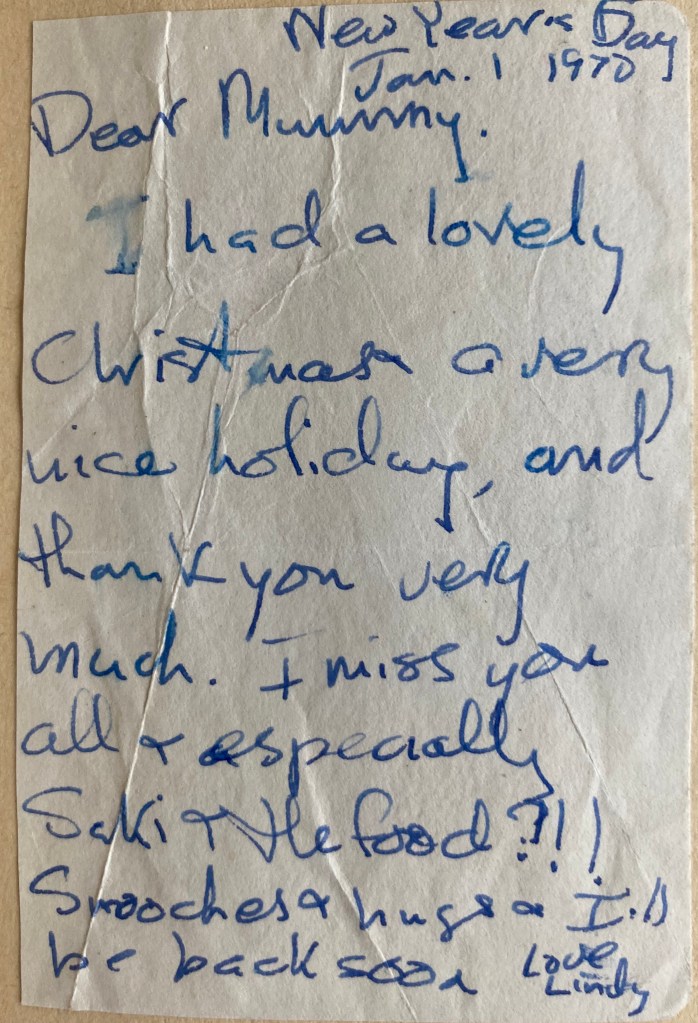 New Year's Day
Jan. 1 1970
Dear Mummy.
I had a lovely
Christmas & a very
nice holiday, and
thank you very
much. I miss you
all & especially
Saki & the food?!!!
Smooches & hugs & I'll
be back soon Love
Lindy